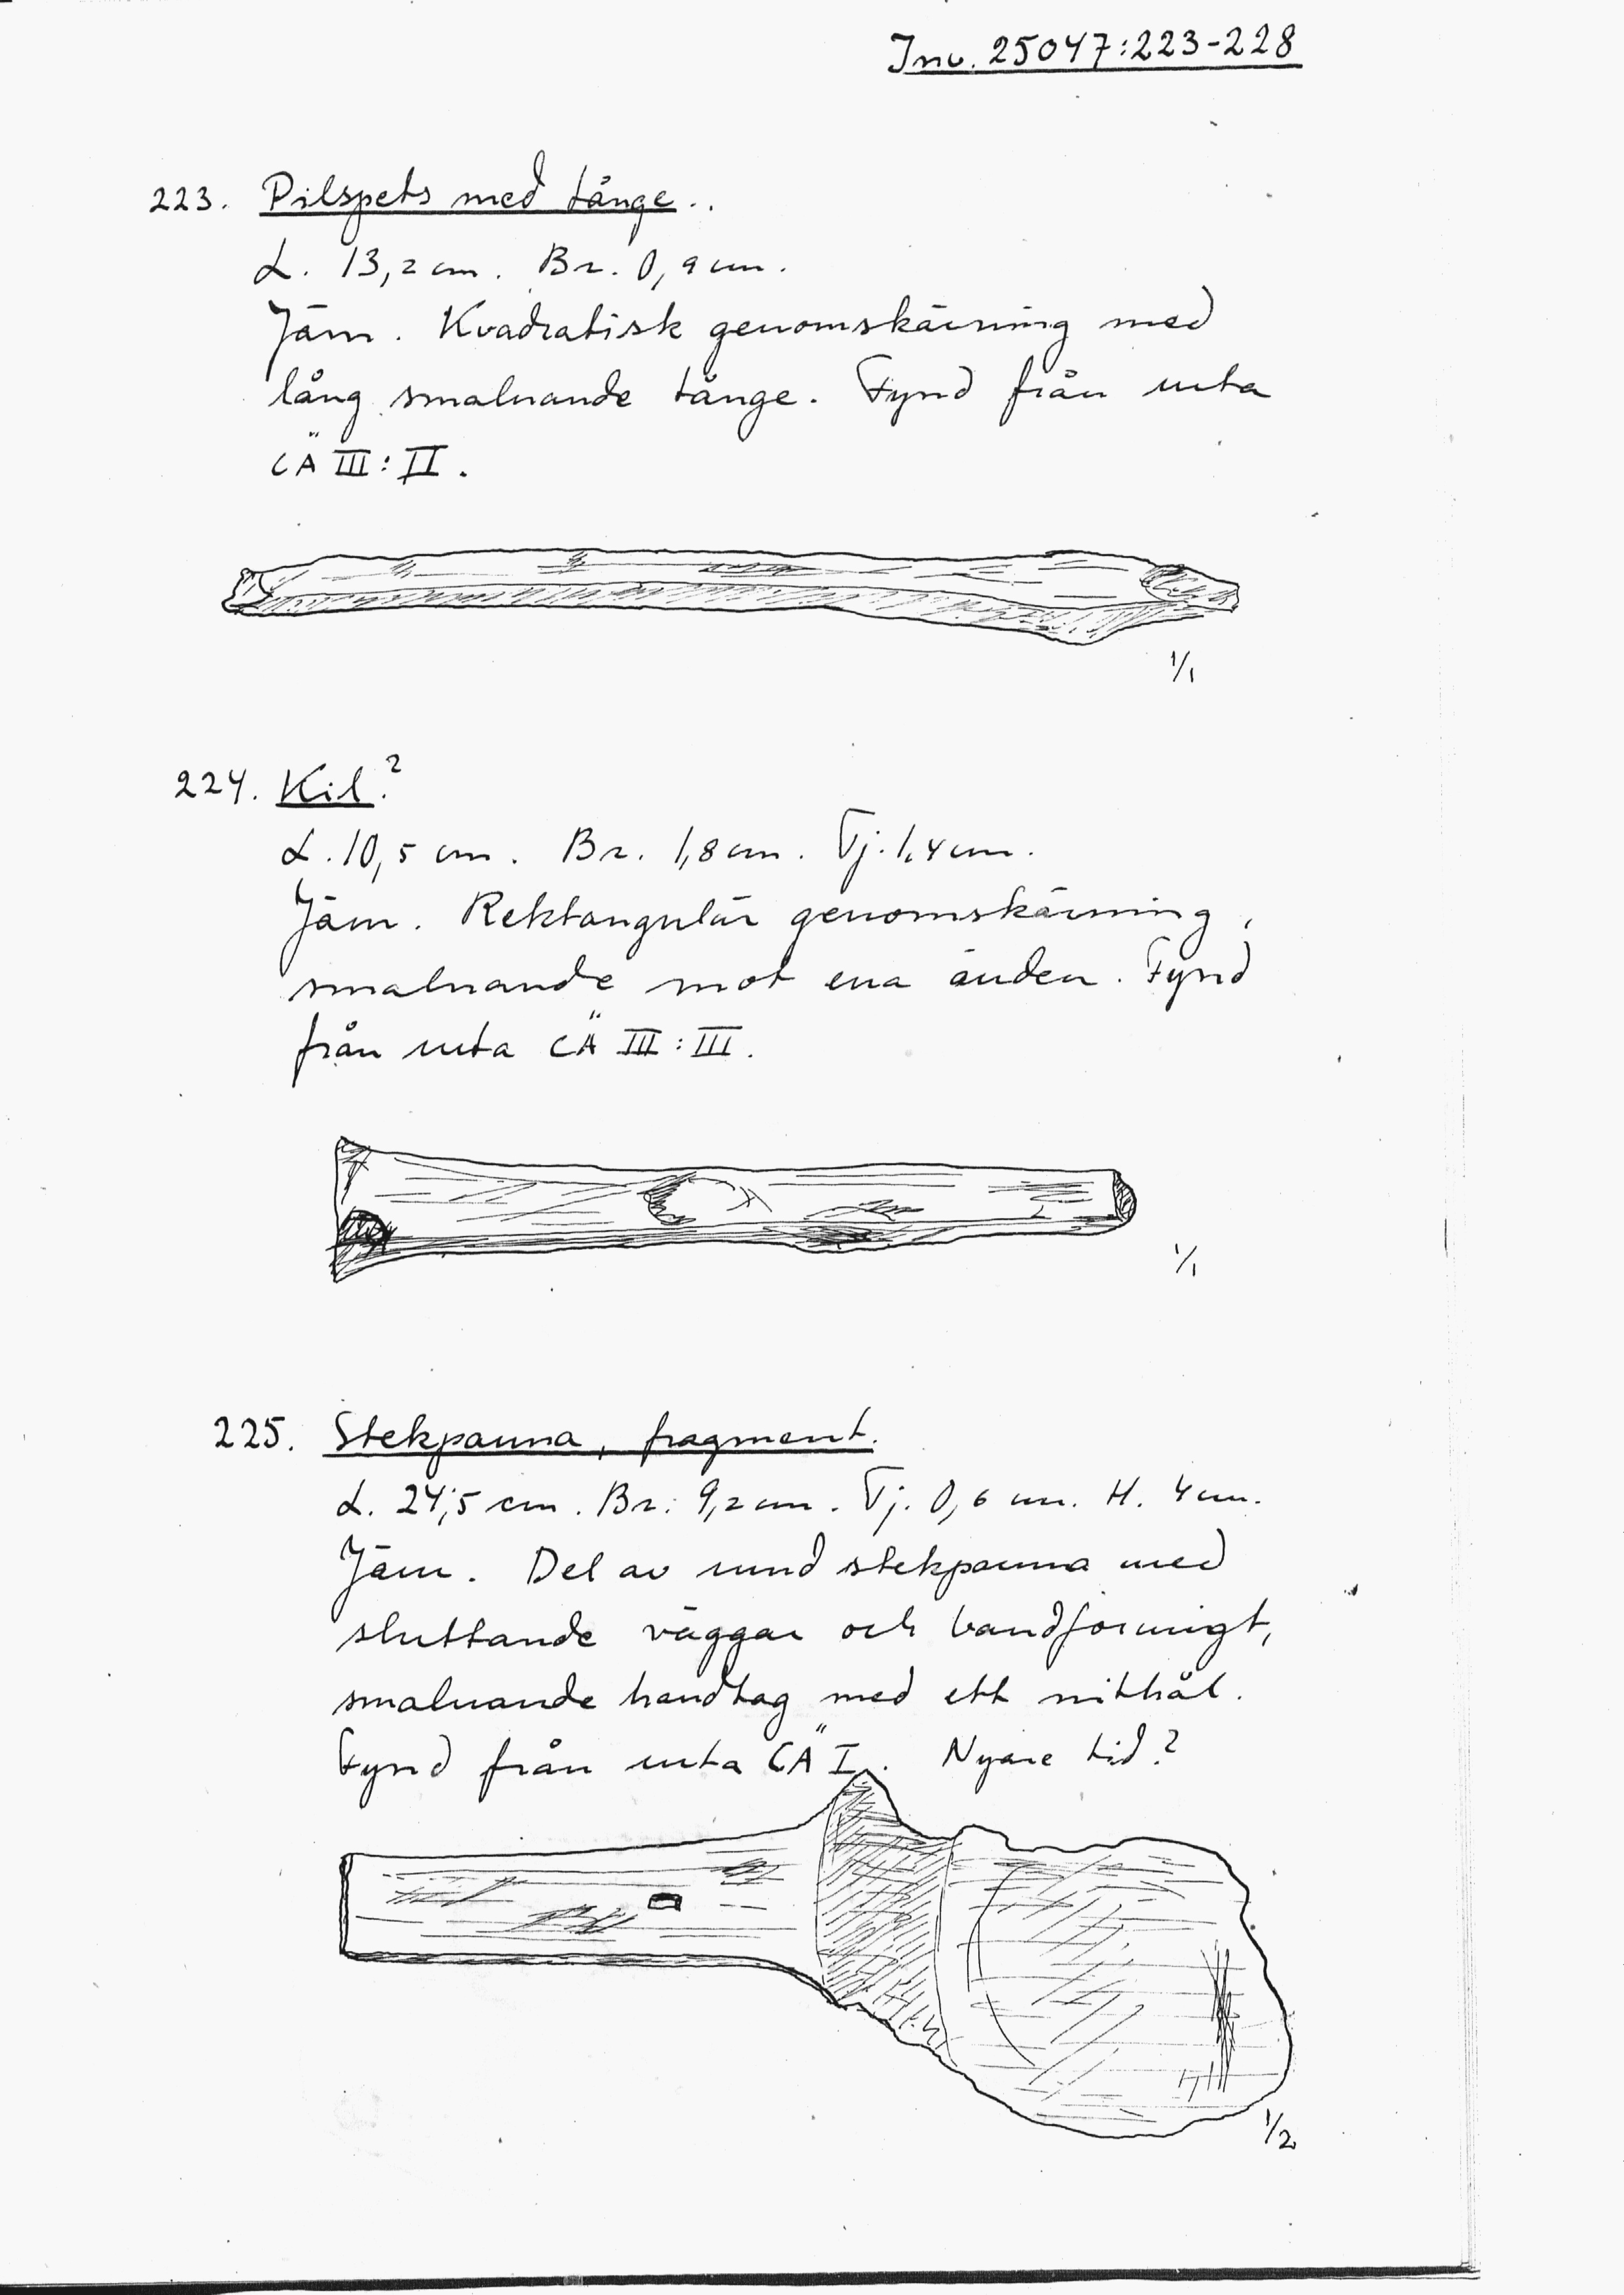 Inv. 25047:223-228
223. Pilspets med tånge..
L. 13,2 cm. Br. 0,9 cm.
Järn. Kvadratisk genomskärning med
lång smalnande tånge. Fynd från ruta
CÄ III:II.
1/1
224. Kil.?
L. 10,5 cm. Br. 1,8 cm. Tj. 1,4 cm.
Järn. Rektangulär genomskärning,
smalnande mot ena änden. Fynd
från ruta CÄ III:III.
1/1
225. Stekpanna, fragment.
L. 24,5 cm. Br. 9,2 cm. Tj. 0,6 cm. H. 4 cm.
Järn. Del av rund stekpanna med
sluttande väggar och bandformigt,
smalnande handtag med ett nithål.
Fynd från ruta CÄ I. Nyare tid?
1/2